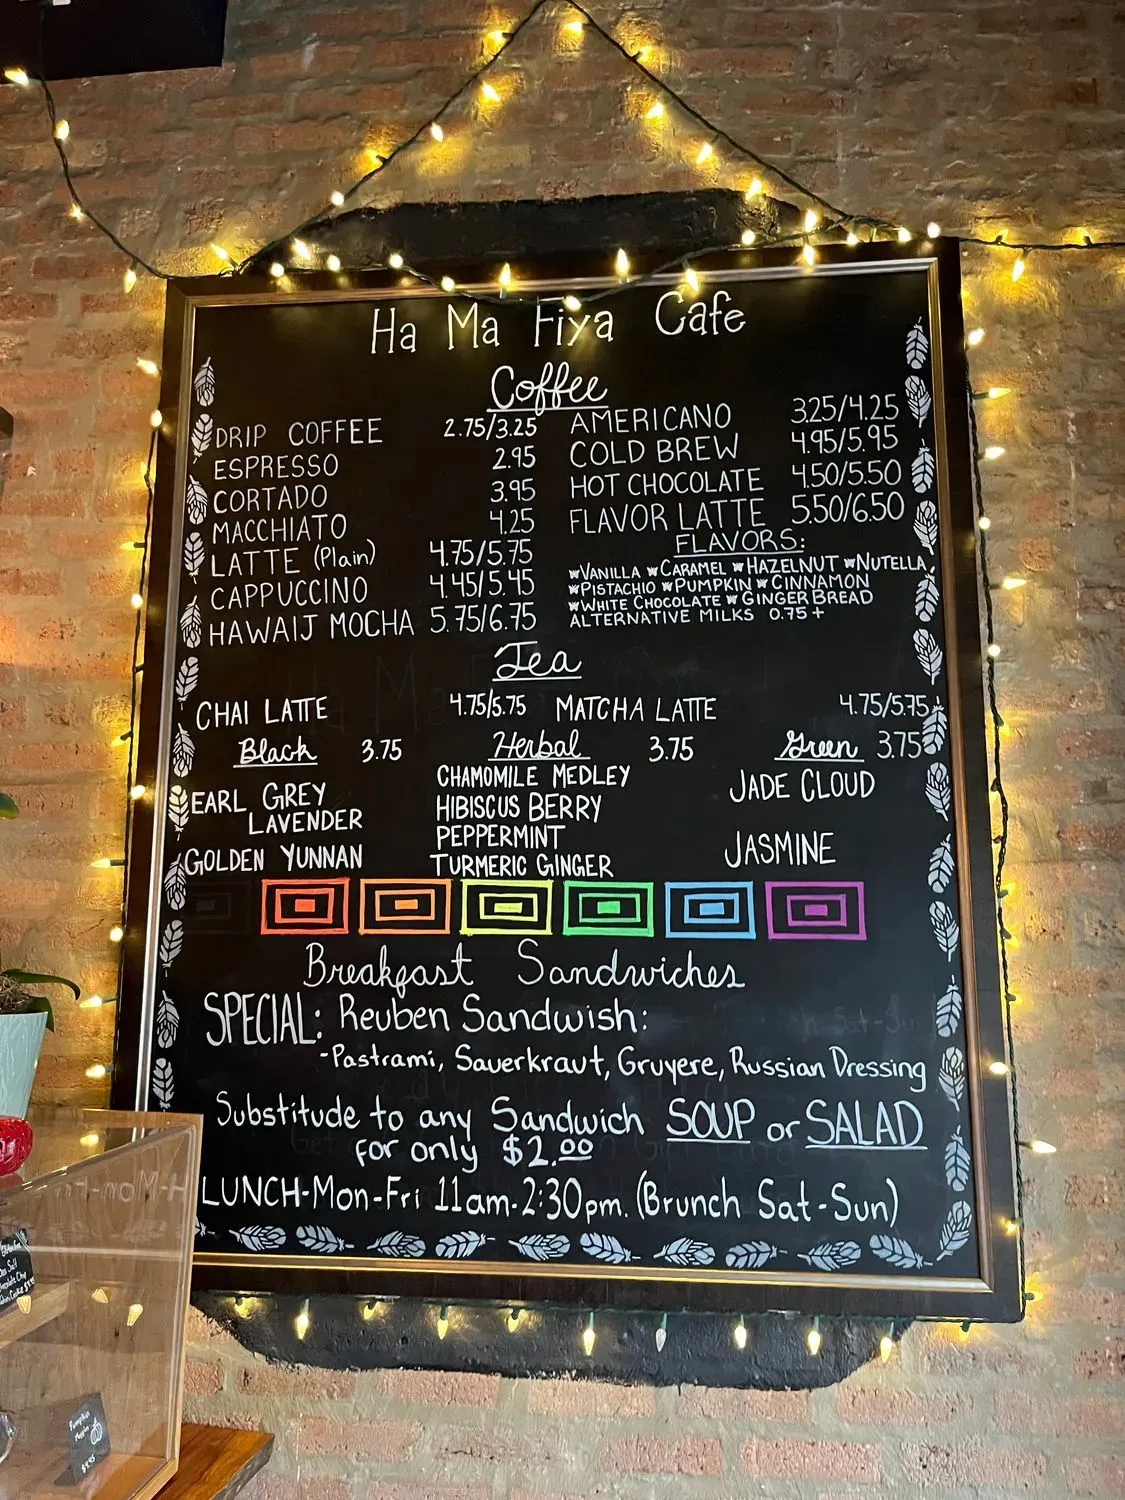 Ha Ma Fiya Cafe
Coffee
DRIP COFFEE 2.75/3.25
ESPRESSO 2.95
CORTADO 3.95
MACCHIATO 4.25
LATTE (Plain) 4.75/5.75
CAPPUCCINO 4.45/5.45
HAWAIJ MOCHA 5.75/6.75
AMERICANO 3.25/4.25
COLD BREW 4.95/5.95
HOT CHOCOLATE 4.50/5.50
FLAVOR LATTE 5.50/6.50
FLAVORS:
VANILLA CARAMEL HAZELNUT NUTELLA,
PISTACHIO PUMPKIN CINNAMON
WHITE CHOCOLATE GINGERBREAD
ALTERNATIVE MILKS 0.75+
Tea
CHAI LATTE 4.75/5.75 MATCHA LATTE 4.75/5.75
Black 3.75
EARL GREY
LAVENDER
GOLDEN YUNNAN
Herbal 3.75
CHAMOMILE MEDLEY
HIBISCUS BERRY
PEPPERMINT
TURMERIC GINGER
Green 3.75
JADE CLOUD
JASMINE
Breakfast Sandwiches
SPECIAL: Reuben Sandwish:
-Pastrami, Sauerkraut, Gruyere, Russian Dressing
Substitude to any Sandwich SOUP or SALAD
for only $2.00
LUNCH-Mon-Fri 11am-2:30pm. (Brunch Sat-Sun)
Pumpkin